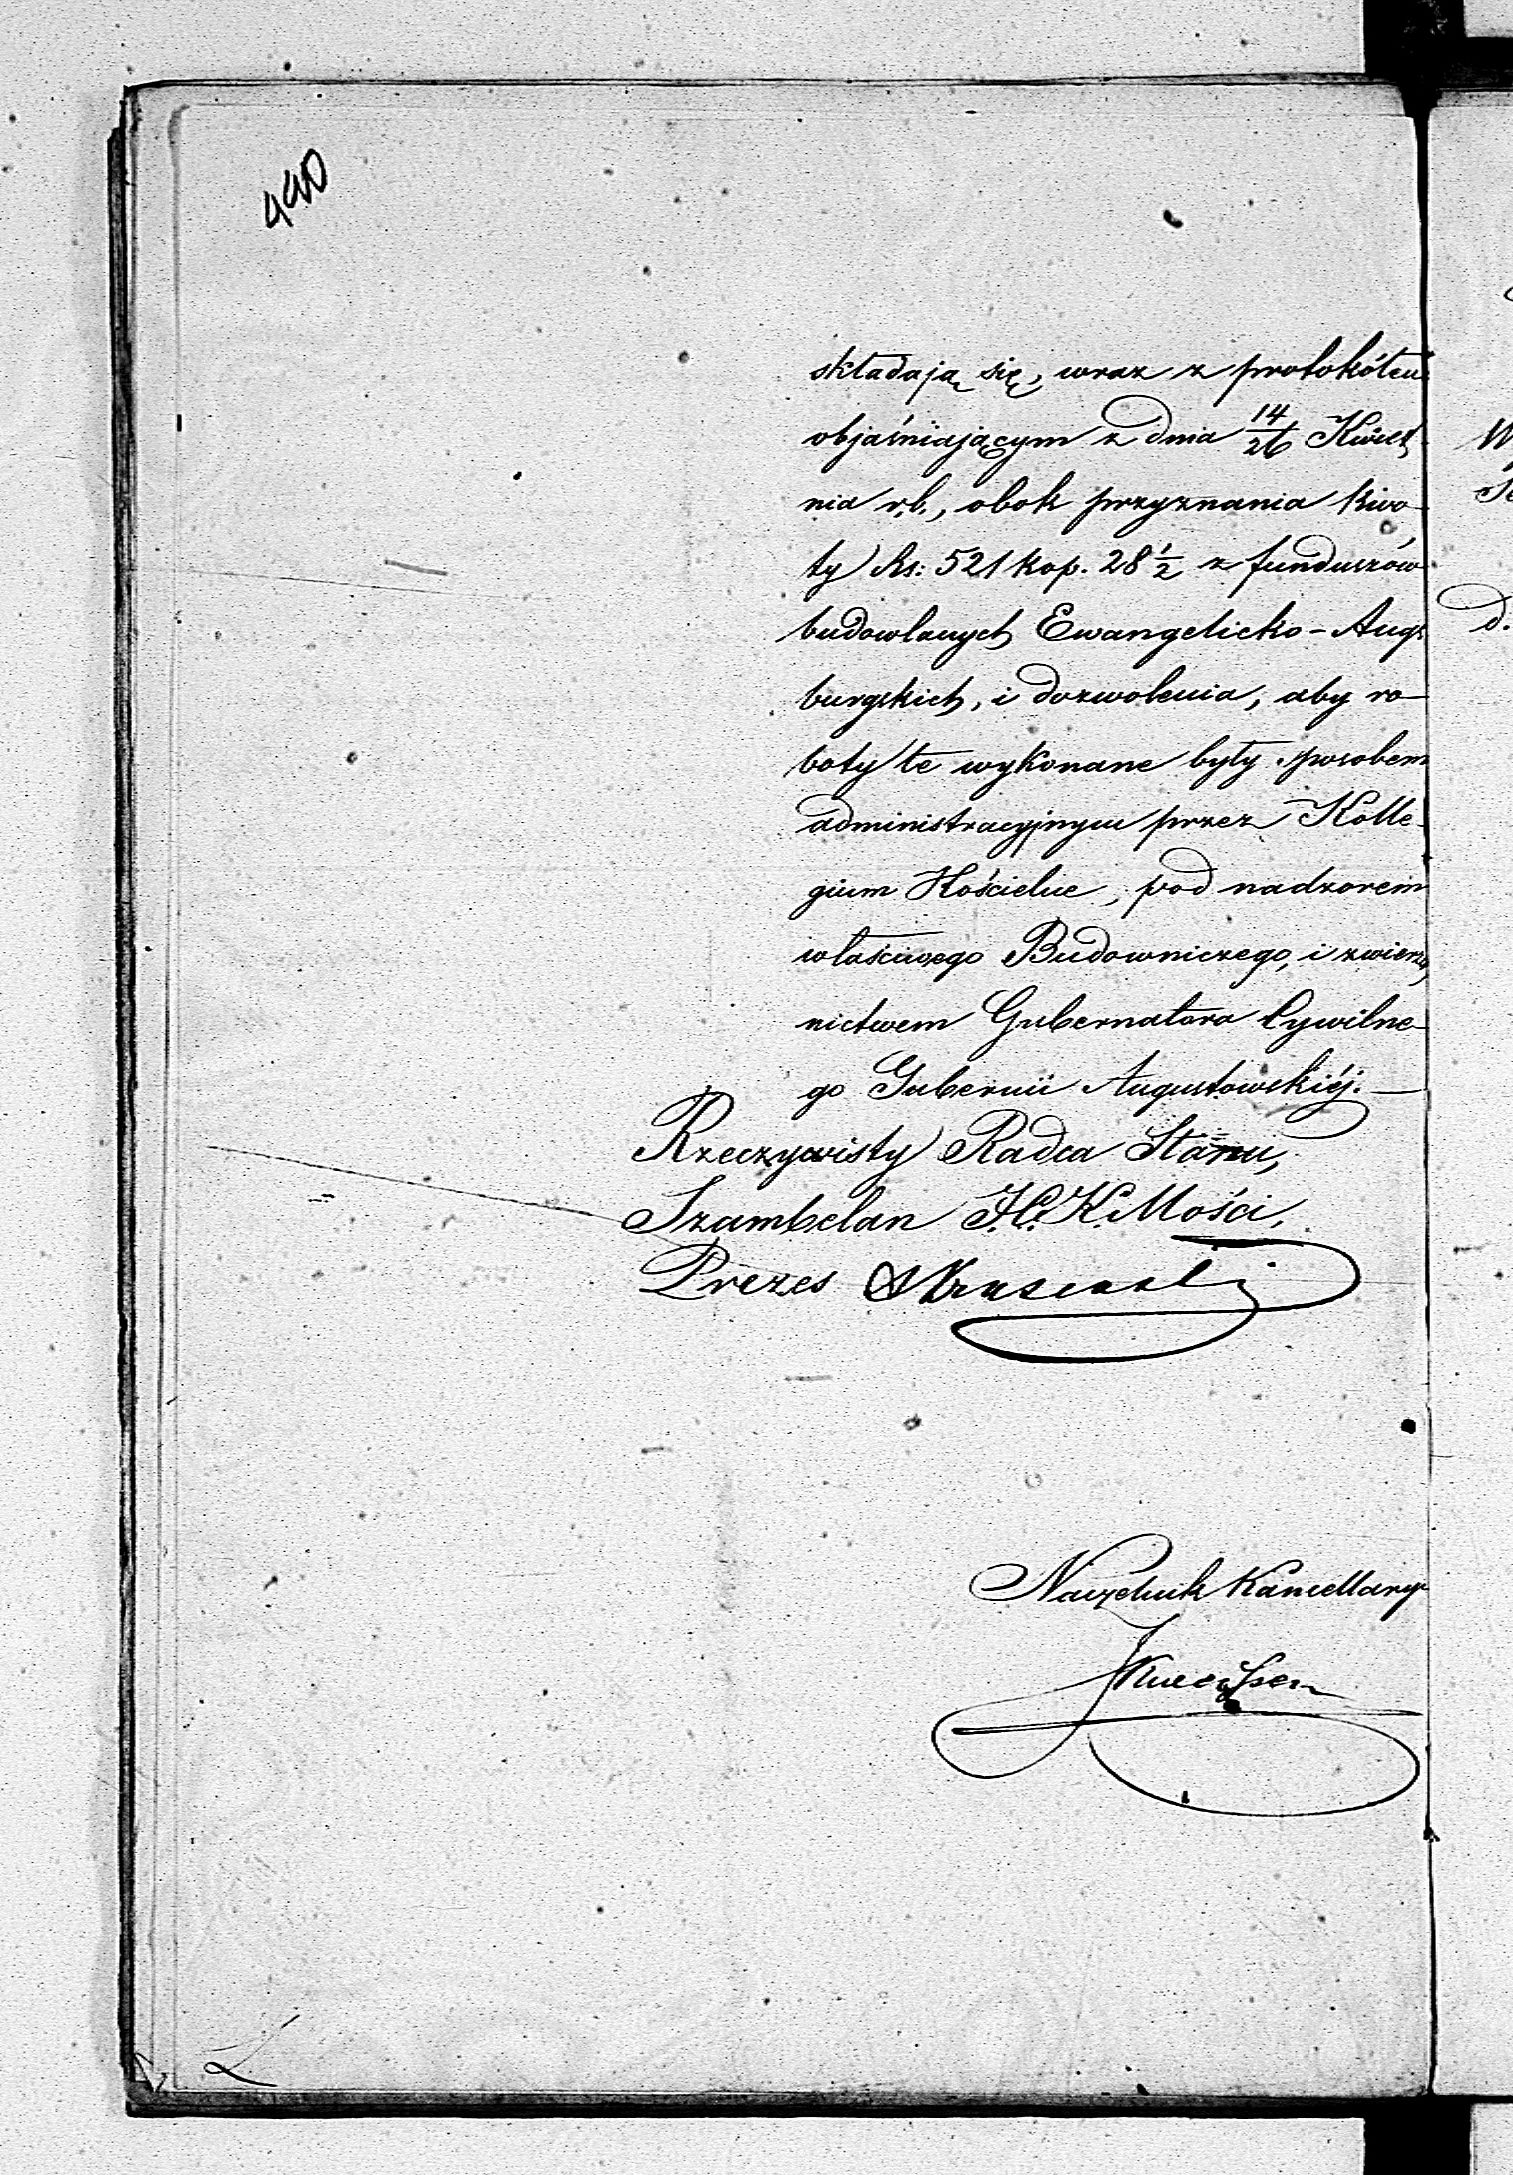 440
składają się, wraz z protokółem
objaśniającym z dnia 14/26 Kwiet
nia r.b., obok przyznania kwo-
ty Rs: 521 kop. 28 1/2 z funduszów
budowlanych Ewangelicko-Augs
burgskich, i dozwolenia, aby ro-
boty te wykonane były sposobem
administracyjnym przez Kolle-
gium Kościelne, pod nadzorem
właściwego Budowniczego, i zwierz
nictwem Gubernatora Cywilne-
go Gubernii Augustowskiéj.—
Rzeczywisty Radca Stanu,
Szambelan J.C.K. Mości,
Prezes
Naczelnik Kancellaryi